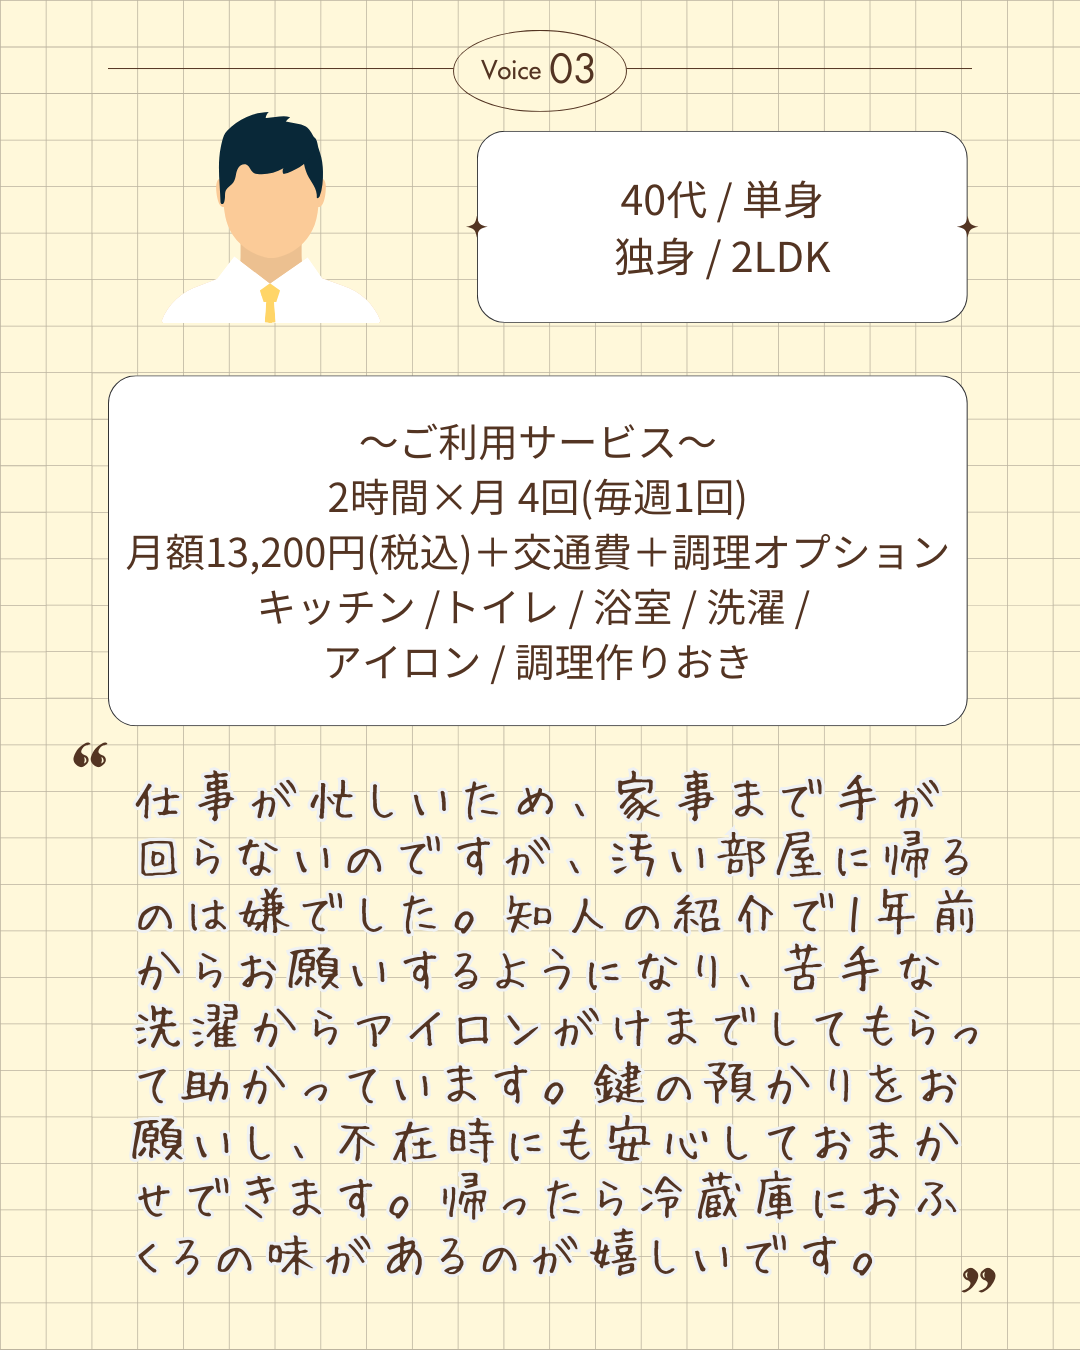 Voice 03
40代 / 単身
独身 / 2LDK
～ご利用サービス～
2時間×月 4回(毎週1回)
月額13,200円(税込)＋交通費＋調理オプション
キッチン /トイレ / 浴室 / 洗濯 /
アイロン / 調理作りおき
“
仕事が忙しいため、家事まで手が
回らないのですが、汚い部屋に帰る
のは嫌でした。知人の紹介で1年前
からお願いするようになり、苦手な
洗濯からアイロンがけまでしてもらっ
て助かっています。鍵の預かりをお
願いし、不在時にも安心しておまか
せできます。帰ったら冷蔵庫におふ
くろの味があるのが嬉しいです。
”